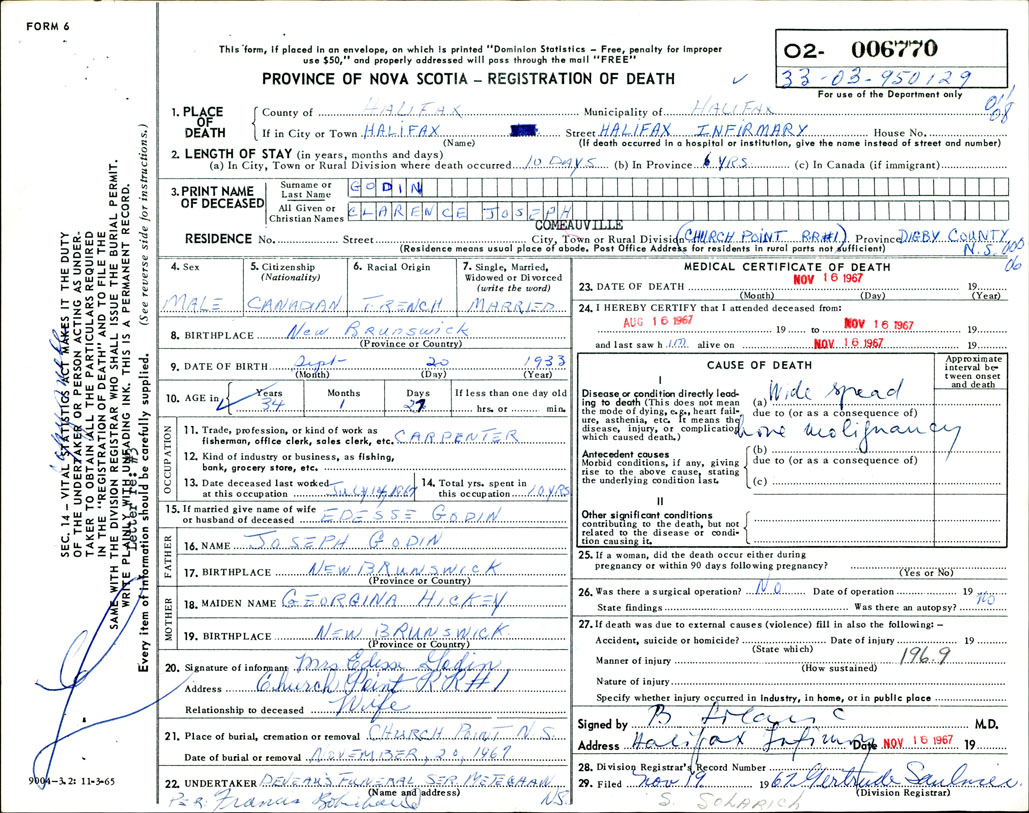 FORM 6
This form, if placed in an envelope, on which is printed "Dominion Statistics – Free, penalty for improper
use $50," and properly addressed will pass through the mail "FREE"
PROVINCE OF NOVA SCOTIA – REGISTRATION OF DEATH
O2- 006770
33-03-950129
For use of the Department only
1. PLACE OF DEATH
County of HALIFAX Municipality of HALIFAX
If in City or Town HALIFAX Street HALIFAX INFIRMARY House No.
(Name) (If death occurred in a hospital or institution, give the name instead of street and number)
2. LENGTH OF STAY (in years, months and days)
(a) In City, Town or Rural Division where death occurred 10 DAYS (b) In Province 6 YRS (c) In Canada (if immigrant)
3. PRINT NAME OF DECEASED
Surname or Last Name GODIN
All Given or Christian Names CLARENCE JOSEPH
COMEAUVILLE
RESIDENCE No. Street City, Town or Rural Division (CHURCH POINT RR#1) Province DIGBY COUNTY N.S.
(Residence means usual place of abode. Post Office Address for residents in rural parts not sufficient)
4. Sex MALE
5. Citizenship (Nationality) CANADIAN
6. Racial Origin FRENCH
7. Single, Married, Widowed or Divorced (write the word) MARRIED
8. BIRTHPLACE New BRUNSWICK
(Province or Country)
9. DATE OF BIRTH Sept 20 1933
(Month) (Day) (Year)
10. AGE in Years 34 Months 1 Days 27 If less than one day old hrs. or min.
OCCUPATION
11. Trade, profession, or kind of work as
fisherman, office clerk, sales clerk, etc. CARPENTER
12. Kind of industry or business, as fishing,
bank, grocery store, etc.
13. Date deceased last worked at this occupation July 14, 1967
14. Total yrs. spent in this occupation 10 YRS
15. If married give name of wife
or husband of deceased EDESSE GODIN
FATHER
16. NAME JOSEPH GODIN
17. BIRTHPLACE NEW BRUNSWICK
(Province or Country)
MOTHER
18. MAIDEN NAME GEORGINA HICKEY
19. BIRTHPLACE NEW BRUNSWICK
(Province or Country)
20. Signature of informant Mrs Edesse Godin
Address Church Point RR#1
Relationship to deceased Wife
21. Place of burial, cremation or removal CHURCH POINT N.S.
Date of burial or removal NOVEMBER, 20, 1967
22. UNDERTAKER DEVEAU'S FUNERAL SER. METEGHAN N.S.
(Name and address)
PER: Francis
MEDICAL CERTIFICATE OF DEATH
23. DATE OF DEATH NOV 16 1967 19
(Month) (Day) (Year)
24. I HEREBY CERTIFY that I attended deceased from:
AUG 16 1967 19 to NOV 16 1967 19
and last saw h im alive on NOV 16 1967 19
CAUSE OF DEATH
Approximate interval between onset and death
I
Disease or condition directly leading to death (This does not mean the mode of dying, e.g., heart failure, asthenia, etc. It means the disease, injury, or complication which caused death.)
(a) Wide spread
due to (or as a consequence of)
bone malignancy
Antecedent causes
Morbid conditions, if any, giving rise to the above cause, stating the underlying condition last.
(b)
due to (or as a consequence of)
(c)
II
Other significant conditions
contributing to the death, but not related to the disease or condition causing it.
25. If a woman, did the death occur either during
pregnancy or within 90 days following pregnancy?
(Yes or No)
26. Was there a surgical operation? NO Date of operation 19
State findings Was there an autopsy? No
27. If death was due to external causes (violence) fill in also the following: –
Accident, suicide or homicide? Date of injury 19
(State which)
Manner of injury 196.9
(How sustained)
Nature of injury
Specify whether injury occurred in Industry, in home, or in public place
Signed by B M.D.
Address Halifax Infirmary Date NOV 16 1967 19
28. Division Registrar's Record Number
29. Filed Nov 19 1967 Gertrude Saulnier
(Division Registrar)
S. SOLARICH
SEC. 14 – VITAL STATISTICS ACT MAKES IT THE DUTY
OF THE UNDERTAKER OR PERSON ACTING AS UNDER-
TAKER TO OBTAIN ALL THE PARTICULARS REQUIRED
IN THE "REGISTRATION OF DEATH" AND TO FILE THE
SAME WITH THE DIVISION REGISTRAR WHO SHALL ISSUE THE BURIAL PERMIT.
WRITE PLAINLY WITH UNFADING INK. THIS IS A PERMANENT RECORD.
Letter re: #3
Every item of information should be carefully supplied. (See reverse side for instructions.)
9004-3.2: 11-3-65